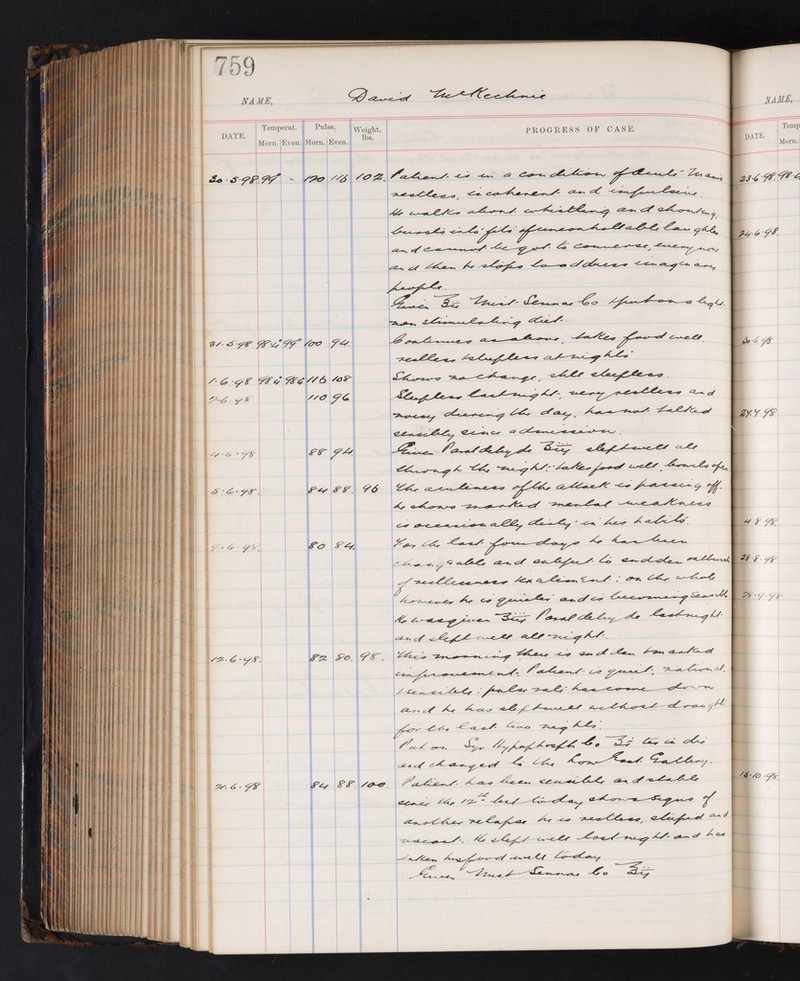 759
NAME, David McKechnie
DATE. Temperat. Pulse. Weight, lbs. PROGRESS OF CASE.
Morn. Even. Morn. Even.
30.5.98 99 - 120 116 102. Patient is in a condition of acute Mania
restless, incoherent and impulsive
He walks about whistling and shouting,
bursts into fits of uncontrollable laughter
and cannot be got to converse, every now
and then he stops to address imaginary
people.
Given Mist. Sennae Co & put on a light
non stimulating diet.
31.5.98 98.4 99 100 94 Continues as above, takes food well
restless & sleepless at nights
1.6.98 98.4 98.6 116 108 Shows no change, still sleepless.
2.6.98 110 96 Sleepless last night, very restless and
noisy during the day, has not talked
sensibly since admission.
4.6.98 88 94 Given Paraldehyde slept well all
through the night: takes food well bowels open
5.6.98. 84 88. 96 The acuteness of the attack is passing off.
he shows marked mental weakness
is occasionally dirty in his habits.
9.6.98. 80 84. For the last four days he has been
changeable and subject to sudden outbursts
of restlessness & excitement: on the whole
however he is quieter and is becoming sensible
He was given Paraldehyde last night
and slept well all night.
12.6.98. 82 80. 98. This morning there is sudden & marked
improvement. Patient is quiet, rational,
& sensible: pulse rate has come down
and he has slept well without draught
for the last two nights.
Put on Syr Hypophosph Co ter in die
and changed to the Low East Gallery.
21.6.98 84 88 100. Patient has been sensible and stable
since the 12th but today shows signs of
another relapse he is restless, stupid and
vacant. He slept well last night and has
taken his food well today
Given Mist Sennae Co
NAME,
DATE. Temp
Morn.
23.6.98. 98.4
24.6.98
30.6.98
24.7.98
4.8.98.
28.8.98
28.9.98
16.10.98